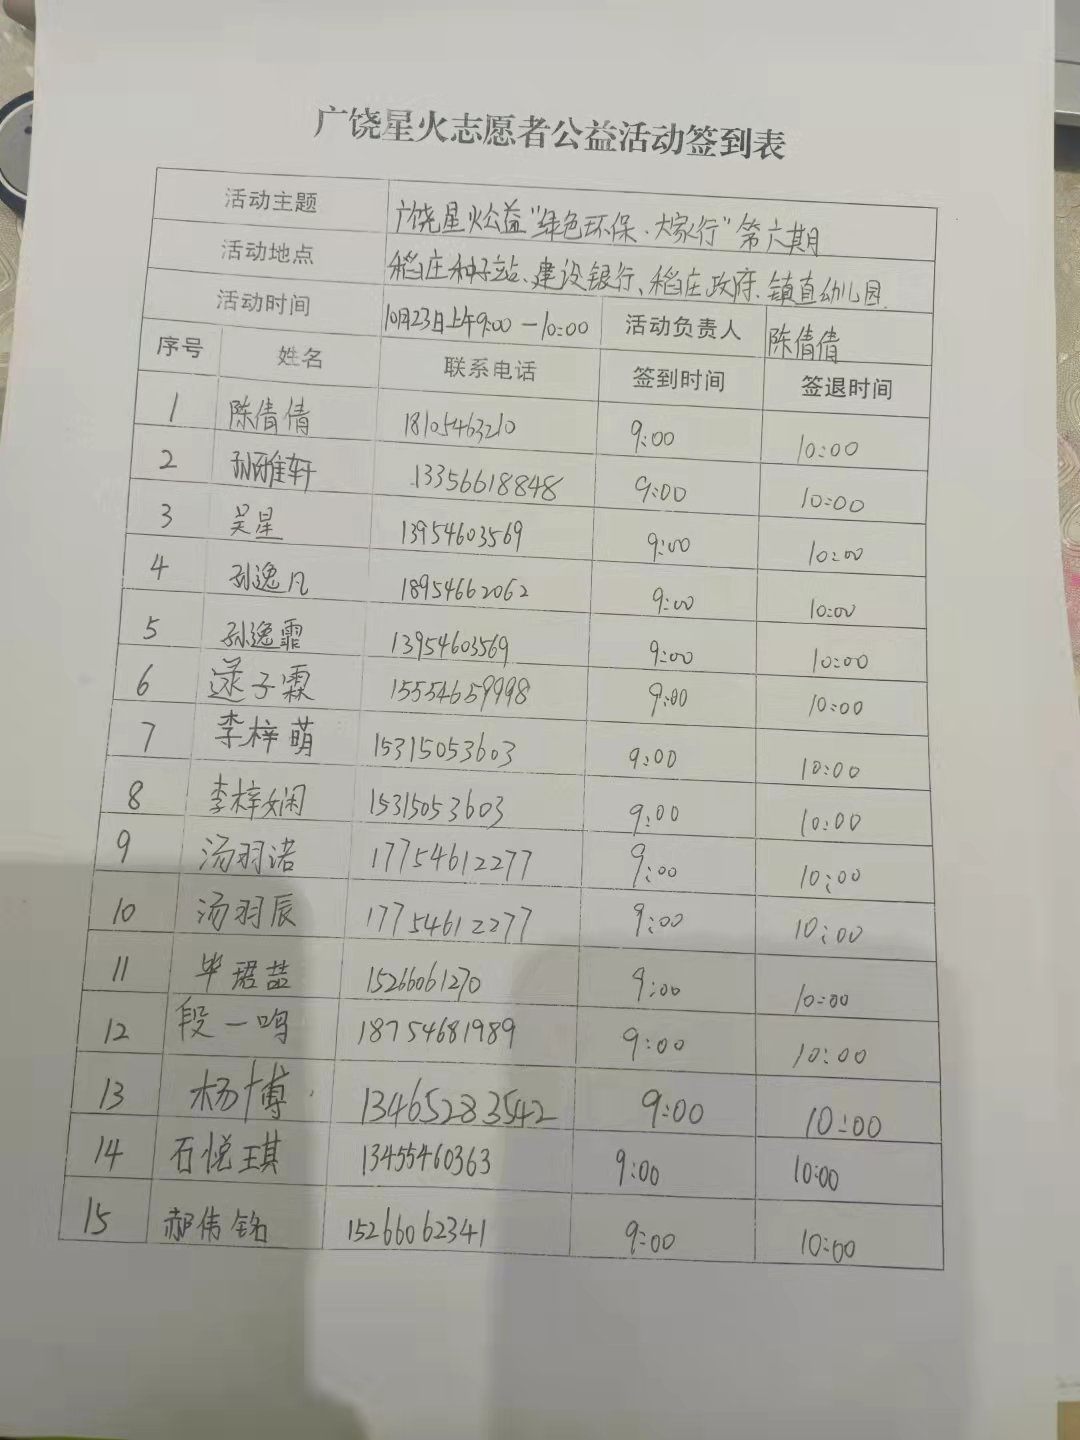 广饶星火志愿者公益活动签到表
活动主题 广饶星火公益"绿色环保、大家行"第六期
活动地点 稻庄种子站、建设银行、稻庄政府、镇直幼儿园
活动时间 10月23日上午9:00—10:00 活动负责人 陈倩倩
序号 姓名 联系电话 签到时间 签退时间
1 陈倩倩 18105463210 9:00 10:00
2 孙雅轩 13356618848 9:00 10:00
3 吴星 13954603569 9:00 10:00
4 孙逸凡 18954662062 9:00 10:00
5 孙逸霏 13954603569 9:00 10:00
6 子霖 15554659998 9:00 10:00
7 李梓萌 15315053603 9:00 10:00
8 李梓娴 15315053603 9:00 10:00
9 汤羽诺 17754612277 9:00 10:00
10 汤羽辰 17754612277 9:00 10:00
11 毕珺喆 15266061270 9:00 10:00
12 段一鸣 18754681989 9:00 10:00
13 杨博 13465283542 9:00 10:00
14 石悦琪 13455460363 9:00 10:00
15 郝伟铭 15266062341 9:00 10:00